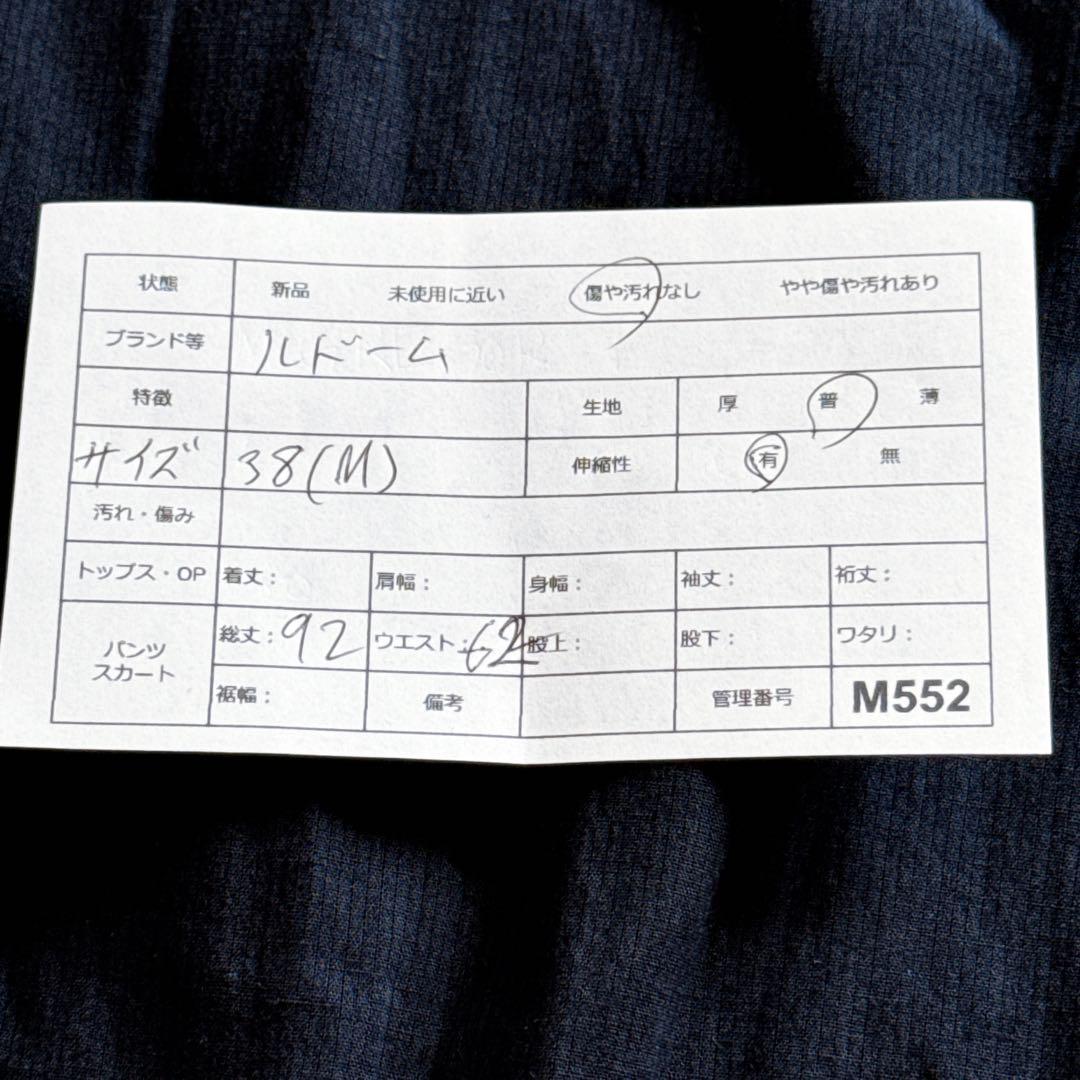 状態 新品 未使用に近い 傷や汚れなし やや傷や汚れあり
ブランド等 ルドーム
特徴 生地 厚 普 薄
サイズ 38(M) 伸縮性 有 無
汚れ・傷み
トップス・OP 着丈： 肩幅： 身幅： 袖丈： 裄丈：
パンツ スカート 総丈：92 ウエスト：62 股上： 股下： ワタリ：
裾幅： 備考 管理番号 M552